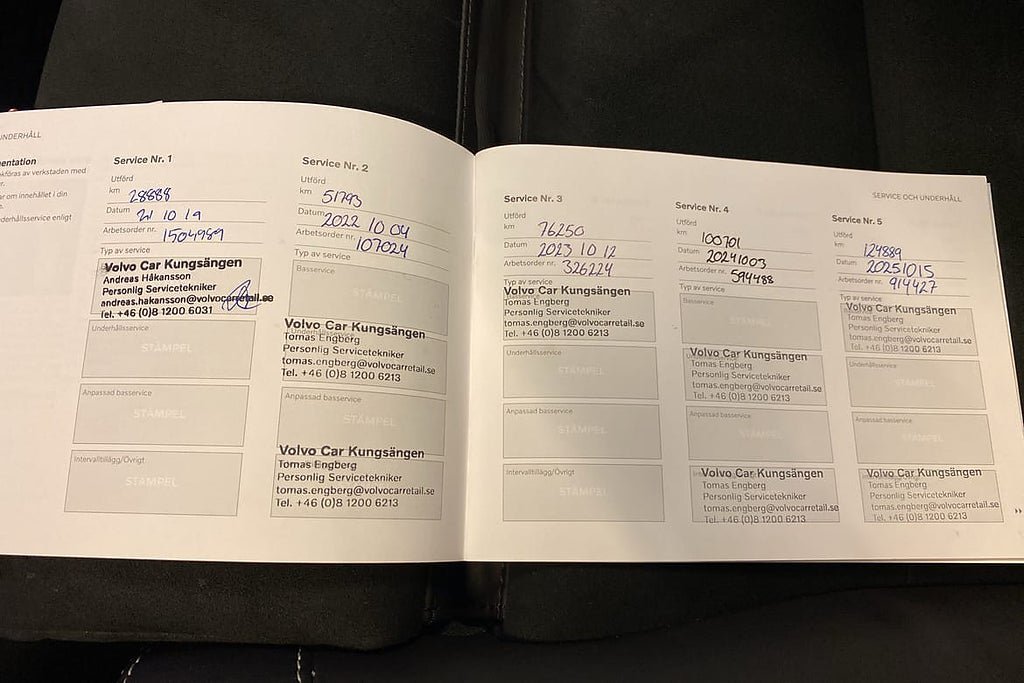 UNDERHÅLL
entation
kföras av verkstaden med
r.
ar om innehållet i din
derhållsservice enligt
Service Nr. 1
Utförd
km 28888
Datum 21 10 19
Arbetsorder nr. 1504989
Typ av service
Volvo Car Kungsängen
Andreas Håkansson
Personlig Servicetekniker
andreas.hakansson@volvocarretail.se
Tel. +46 (0)8 1200 6031
Underhållsservice
STÄMPEL
Anpassad basservice
STÄMPEL
Intervalltillägg/Övrigt
STÄMPEL
Service Nr. 2
Utförd
km 51793
Datum 2022 10 04
Arbetsorder nr. 107024
Typ av service
Basservice
STÄMPEL
Volvo Car Kungsängen
Underhållsservice
Tomas Engberg
Personlig Servicetekniker
tomas.engberg@volvocarretail.se
Tel. +46 (0)8 1200 6213
Anpassad basservice
STÄMPEL
Volvo Car Kungsängen
Tomas Engberg
Personlig Servicetekniker
tomas.engberg@volvocarretail.se
Tel. +46 (0)8 1200 6213
SERVICE OCH UNDERHÅLL
Service Nr. 3
Utförd
km 76250
Datum 2023 10 12
Arbetsorder nr. 326224
Typ av service
Volvo Car Kungsängen
Tomas Engberg
Personlig Servicetekniker
tomas.engberg@volvocarretail.se
Tel. +46 (0)8 1200 6213
Underhållsservice
STÄMPEL
Anpassad basservice
STÄMPEL
Intervalltillägg/Övrigt
STÄMPEL
Service Nr. 4
Utförd
km 100701
Datum 20241003
Arbetsorder nr. 594488
Typ av service
Basservice
STÄMPEL
Volvo Car Kungsängen
Tomas Engberg
Personlig Servicetekniker
tomas.engberg@volvocarretail.se
Tel. +46 (0)8 1200 6213
Anpassad basservice
STÄMPEL
Volvo Car Kungsängen
Tomas Engberg
Personlig Servicetekniker
tomas.engberg@volvocarretail.se
Tel. +46 (0)8 1200 6213
Service Nr. 5
Utförd
km 124889
Datum 20251015
Arbetsorder nr. 914427
Typ av service
Volvo Car Kungsängen
Tomas Engberg
Personlig Servicetekniker
tomas.engberg@volvocarretail.se
Tel. +46 (0)8 1200 6213
Underhållsservice
STÄMPEL
Anpassad basservice
STÄMPEL
Volvo Car Kungsängen
Tomas Engberg
Personlig Servicetekniker
tomas.engberg@volvocarretail.se
Tel. +46 (0)8 1200 6213